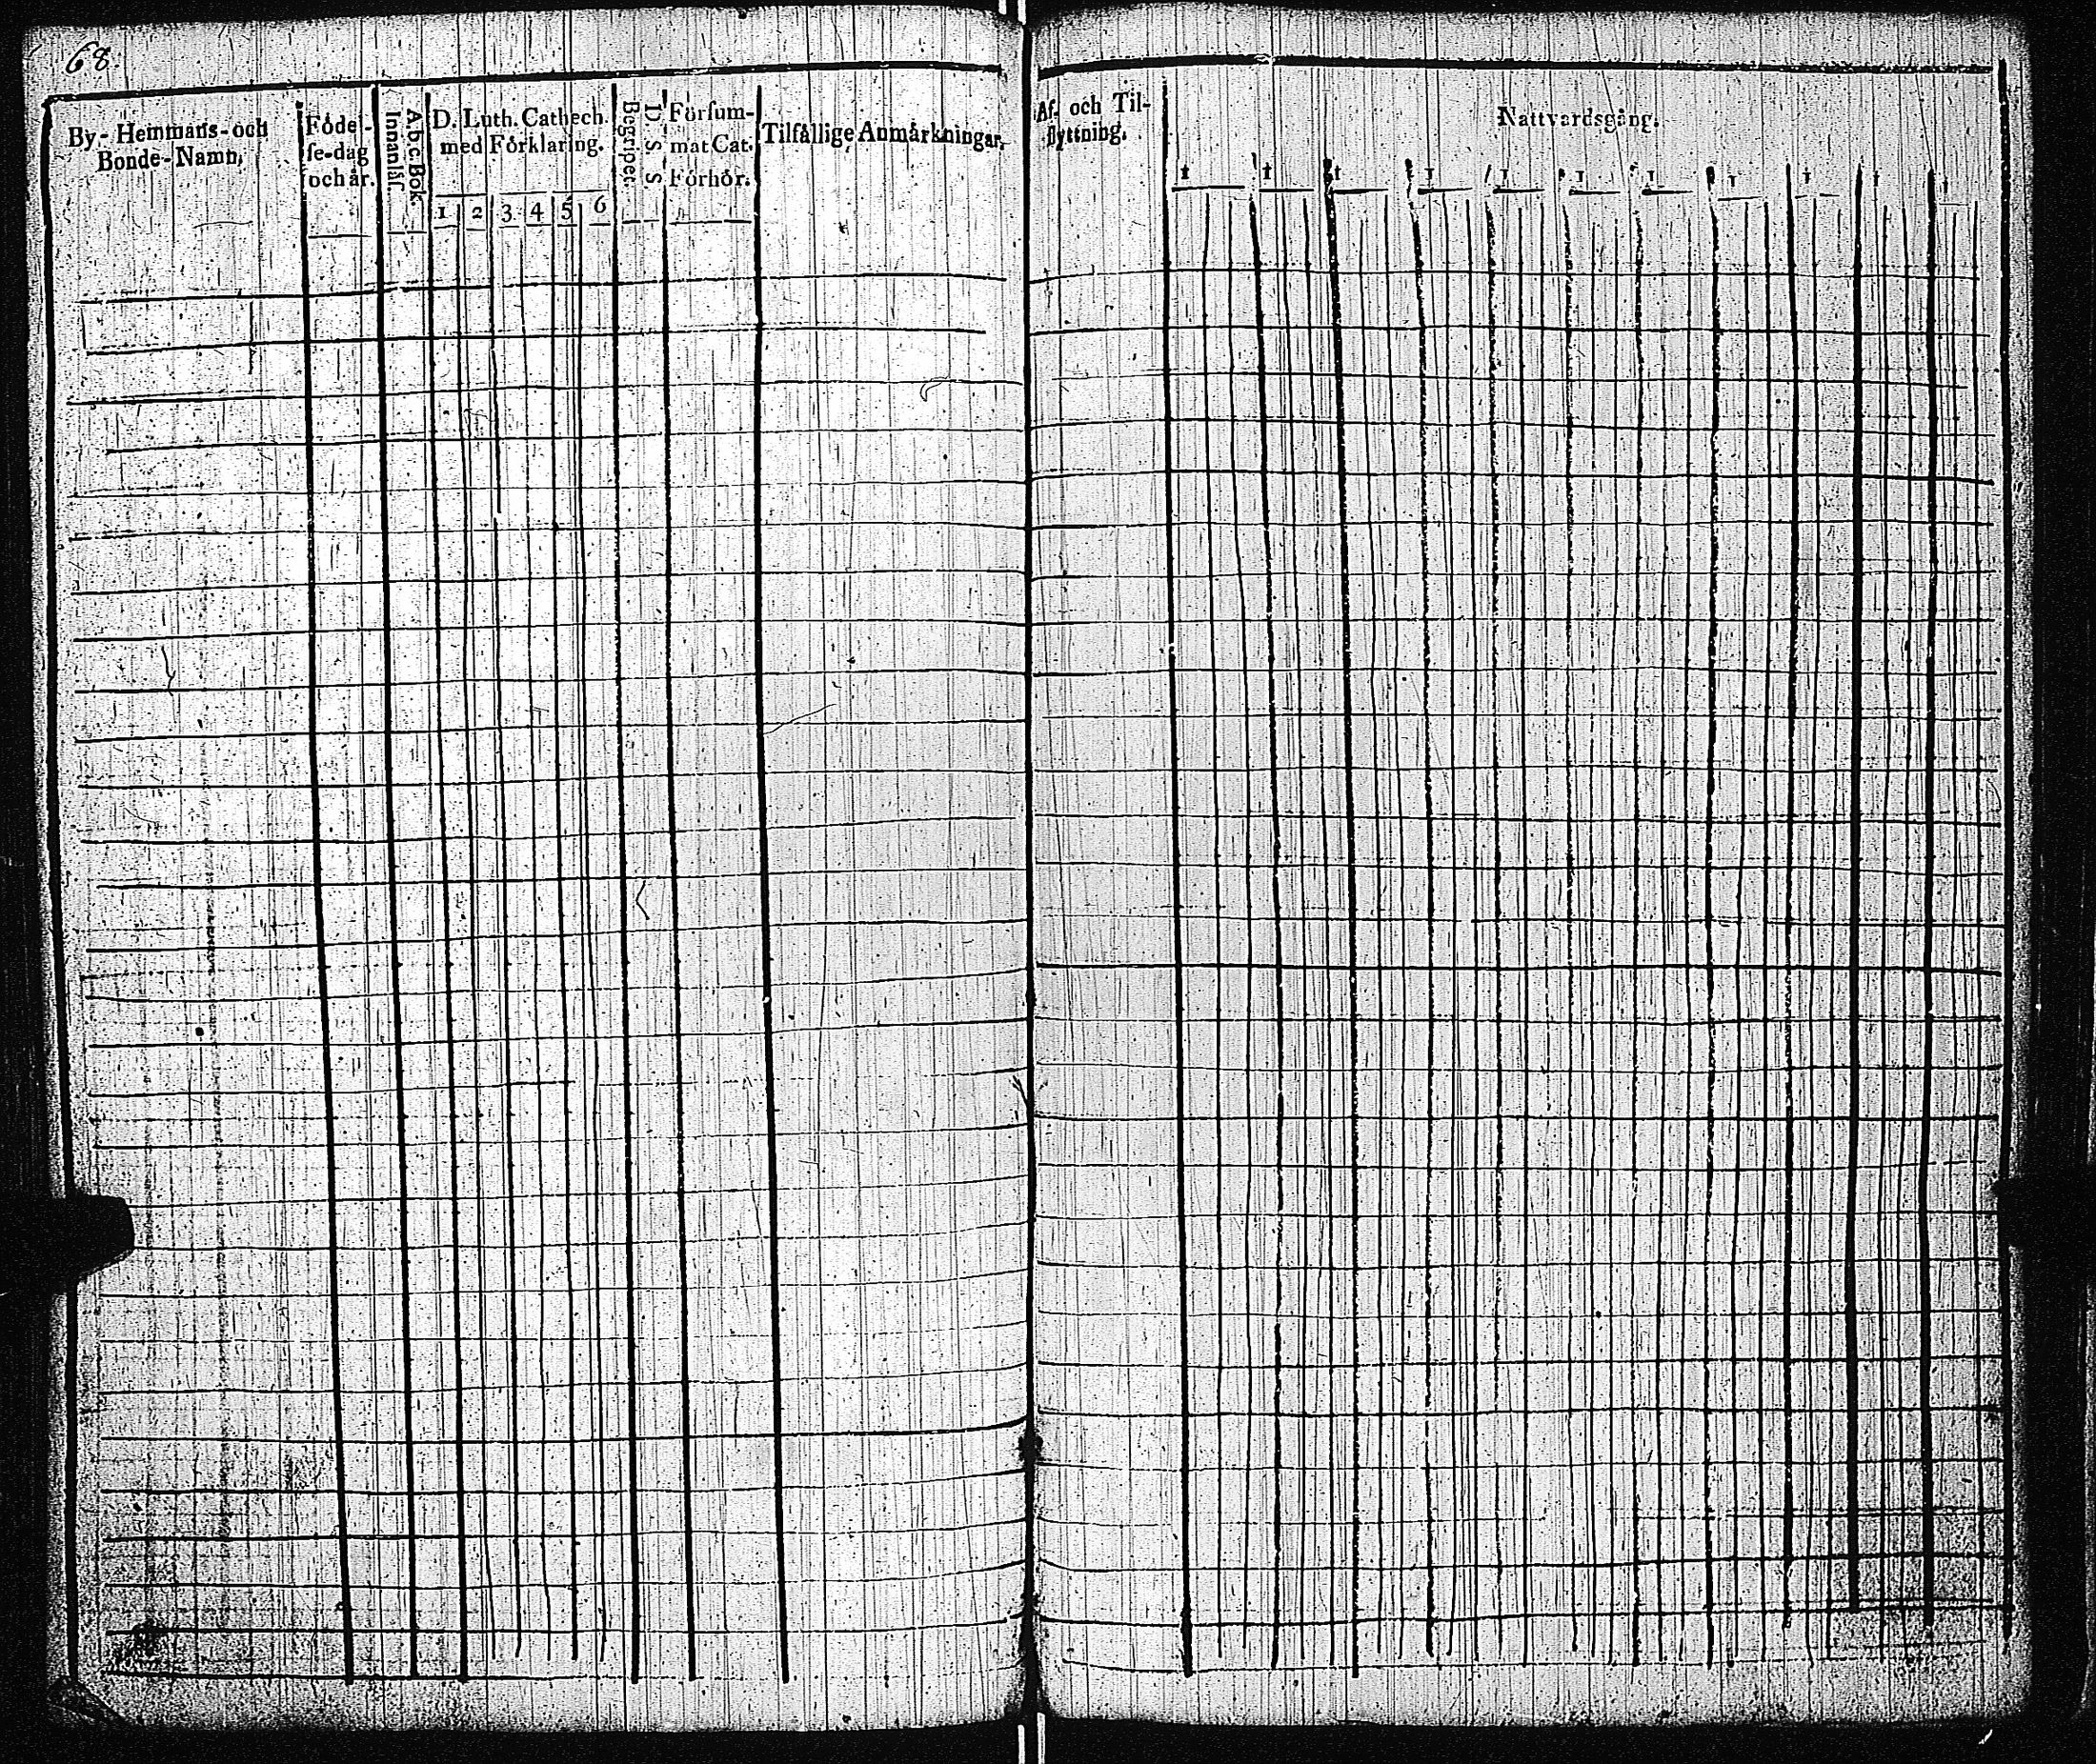 68.
By- Hemmans- och
Bonde-Namn,
Födel-
se-dag
och år.
A b c Bok.
Innanläs.
D. Luth. Cathech.
med Förklaring.
1 2 3 4 5 6
D. S. S
Begripet.
Försum-
mat Cat.
Förhör.
Tilfällige Anmärkningar.
Af- och Til-
flyttning.
Nattvardsgång.
1 1 1 1 1 1 1 1 1 1 1